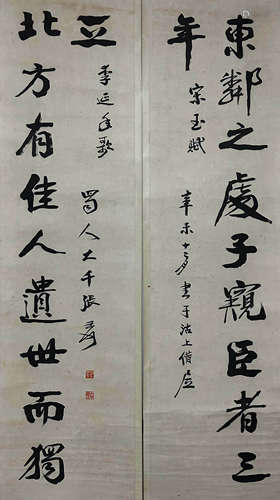 東鄰之處子窺臣者三
年
宋玉賦
辛未十二月書于沽上借居
北方有佳人遺世而獨
立
李延年歌
蜀人大千張爰